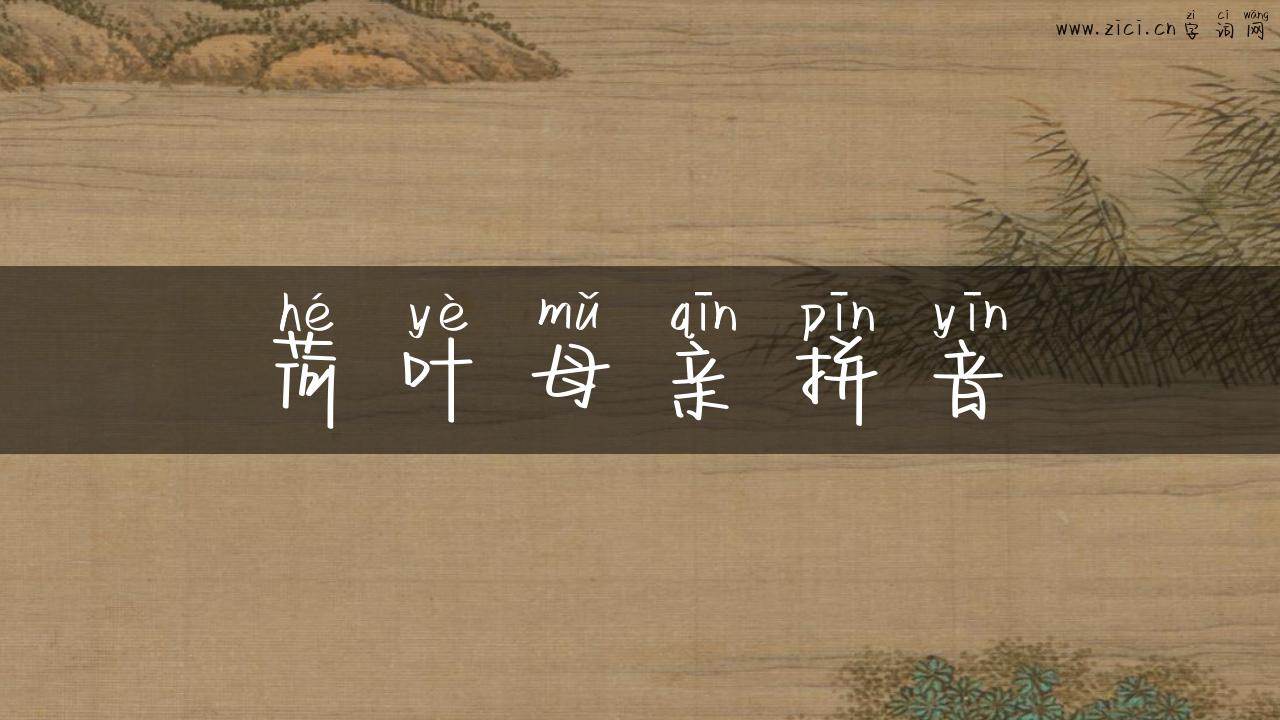 zì cí wǎng
www.zici.cn 字 词 网
hé yè mǔ qīn pīn yīn
荷 叶 母 亲 拼 音